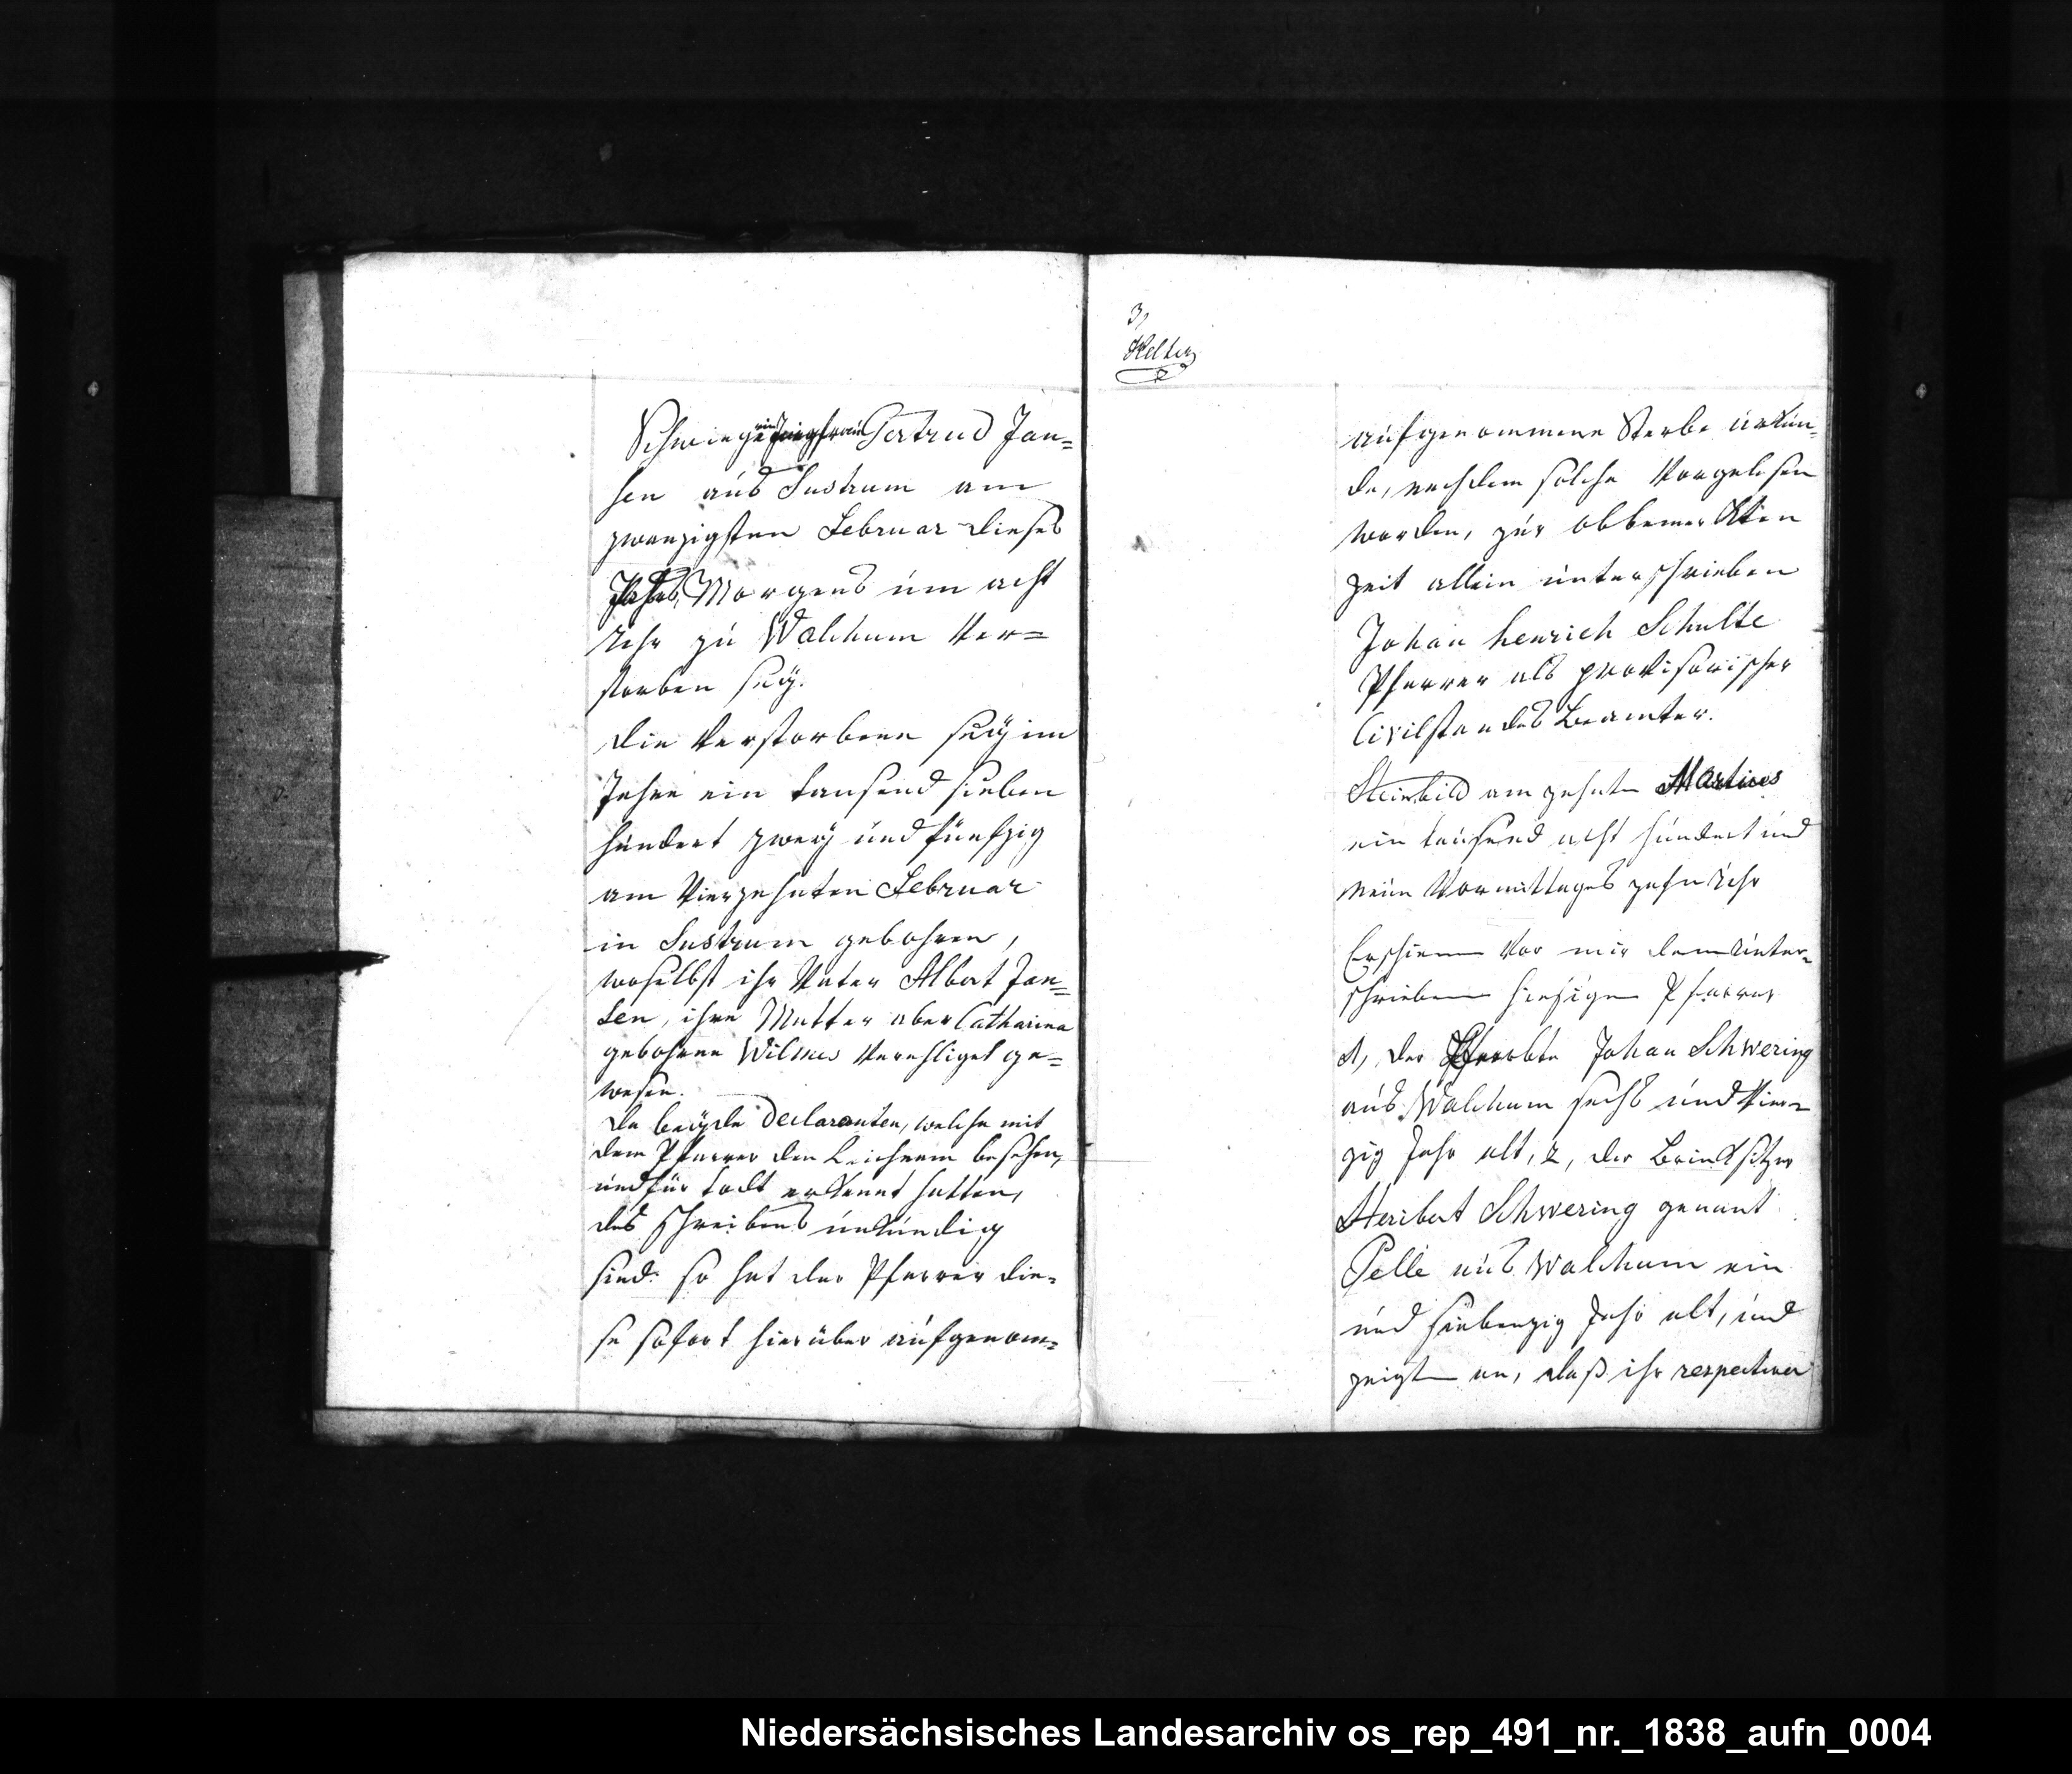 Schwiegerin Gertrud Jan=
sen aus Sustrum am
zwanzigsten Februar dieses
Jahrs, Morgens um acht
Uhr zu Walchum ver=
storben seÿ.
die Verstorbene seÿ im
Jahre ein tausend sieben
hundert zweÿ und fünfzig
am vierzehnten Februar
in Sustrum gebohren,
woselbst ihr Vater Albert Jan=
sen, ihre Mutter aber Catharina
gebohrne Wilmes verehliget ge=
wesen.
da beÿde Declaranten, welche mit
dem Pfarrer den Leichnam besehen,
und für todt erkannt hatten,
des schreibens unkundig
sind: so hat der Pfarrer die=
se sofort hierüber aufgenom=
3,
aufgenommene Sterbe urkun=
de, nachdem solche vorgelesen
worden, zur obbemerkten
Zeit allein unterschrieben
Johan henrich Schulte
Pfarrer als provisorischer
Civilstandes Beamter.
Steinbild am zehnten Martius
ein tausend acht hundert und
neun Vormittages zehn Uhr
Erschienen vor mir dem Unter=
schriebenen hiesigen Pfarrer
1, der Johan Schwering
aus Walchum sechs und vier=
zig Jahr alt, 2, der Brinksitzer
Heribert Schwering genant
Pelle aus Walchum ein
und siebenzig Jahr alt, und
zeigten an, daß ihr respectiver
Niedersächsisches Landesarchiv os_rep_491_nr._1838_aufn_0004